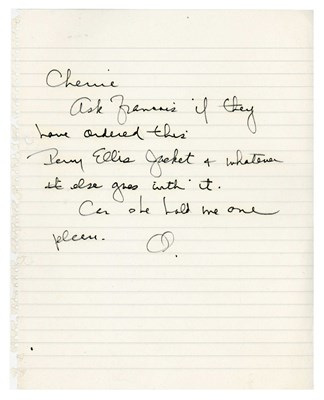 Cherrie
Ask Francois if they
have ordered this
Perry Ellis Jacket & whatever
it else goes with it.
Can she hold me one
please. O.